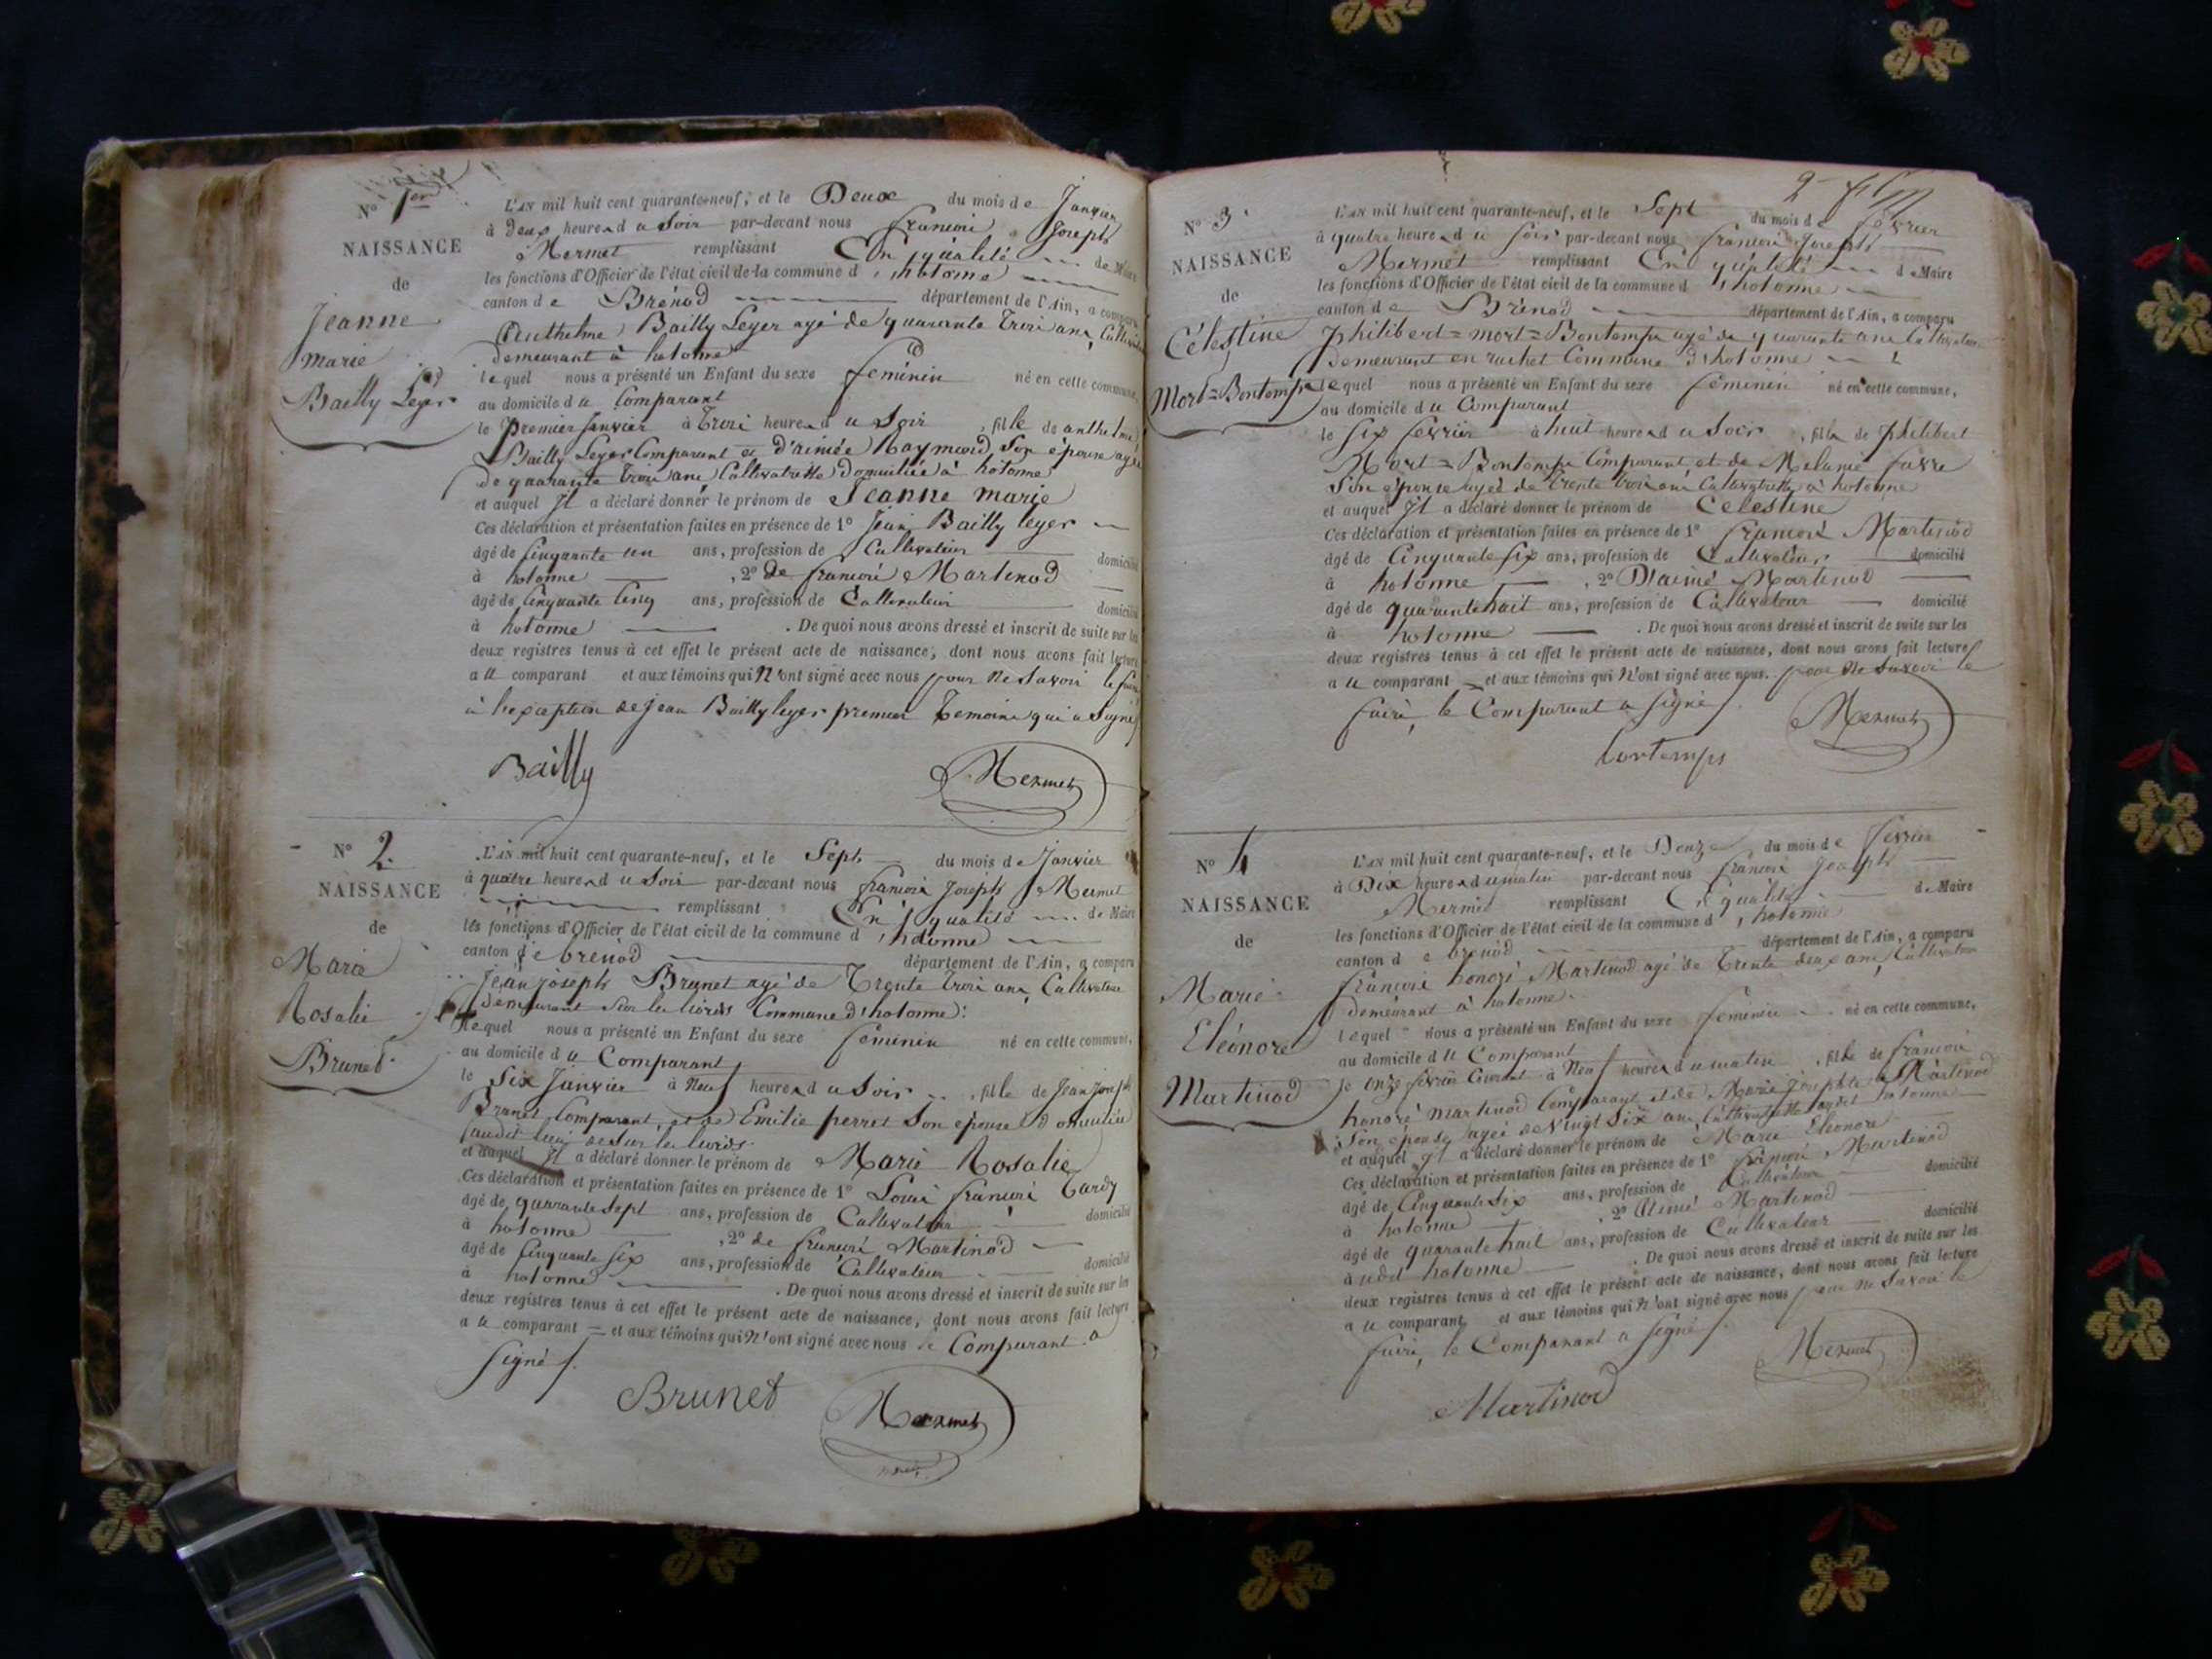 N° 1er
NAISSANCE
de
Jeanne
marie
Bailly Leger
L'AN mil huit cent quarante-neuf, et le Deux du mois de Janvier
à deux heures du Soir par-devant nous francois Joseph
Mermet remplissant En qualité de Maire
les fonctions d'Officier de l'état civil de la commune d'hotonne
canton de Brénod département de l'Ain, a comparu
Anthelme Bailly Leger agé de quarante trois ans, Cultivateur
demeurant à hotonne
lequel nous a présenté un Enfant du sexe feminin né en cette commune,
au domicile du Comparant
le Premier Janvier à trois heures du Soir, fille de anthelme
Bailly Leger Comparant et d'aimée Raymond Son épouse agée
de quarante trois ans Cultivatrice domiciliée à hotonne
et auquel Il a déclaré donner le prénom de Jeanne marie
Ces déclaration et présentation faites en présence de 1° Jean Bailly leger
âgé de Cinquante un ans, profession de Cultivateur domicilié
à hotonne, 2° de francois Martinod
âgé de Cinquante Cinq ans, profession de Cultivateur domicilié
à hotonne. De quoi nous avons dressé et inscrit de suite sur les
deux registres tenus à cet effet le présent acte de naissance, dont nous avons fait lecture
au comparant et aux témoins qui N'ont signé avec nous pour ne Savoir le faire
à l'exception de Jean Bailly leger premier temoins qui a Signé
Bailly Mermet
N° 2.
NAISSANCE
de
Marie
Rosalie
Brunet
L'AN mil huit cent quarante-neuf, et le Sept du mois de Janvier
à quatre heures du Soir par-devant nous francois Joseph Mermet
remplissant En qualité de Maire
les fonctions d'Officier de l'état civil de la commune d'hotonne
canton de brénod département de l'Ain, a comparu
jean joseph Brunet agé de Trente trois ans, Cultivateur
demeurant Sur les Commune d'hotonne
lequel nous a présenté un Enfant du sexe feminin né en cette commune,
au domicile du Comparant
le Six Janvier à Neuf heures du Soir, fille de Jean Joseph
Brunet Comparant, et de Emilie perret Son épouse
et auquel Il a déclaré donner le prénom de Marie Rosalie
Ces déclaration et présentation faites en présence de 1° Louis francois tardy
âgé de quarante Sept ans, profession de Cultivateur domicilié
à hotonne, 2° de francois Martinod
âgé de Cinquante Six ans, profession de Cultivateur domicilié
à hotonne. De quoi nous avons dressé et inscrit de suite sur les
deux registres tenus à cet effet le présent acte de naissance, dont nous avons fait lecture
au comparant et aux témoins qui N'ont signé avec nous le Comparant a
Signé
Brunet Mermet
N° 3
NAISSANCE
de
Célestine
Mort=Bontemps
L'AN mil huit cent quarante-neuf, et le Sept du mois de fevrier
à quatre heures du Soir par-devant nous francois Joseph
Mermet remplissant En qualité de Maire
les fonctions d'Officier de l'état civil de la commune d'hotonne
canton de Brénod département de l'Ain, a comparu
philibert=mort=Bontemps agé de quarante ans Cultivateur
demeurant en Commune d'hotonne
lequel nous a présenté un Enfant du sexe féminin né en cette commune,
au domicile du Comparant
le Six fevrier à huit heures du Soir, fille de philibert
Mort=Bontemps Comparant et de Melanie favre
Son épouse agée de trente trois ans Cultivatrice à hotonne
et auquel Il a déclaré donner le prénom de Célestine
Ces déclaration et présentation faites en présence de 1° francois Martinod
âgé de Cinquante Six ans, profession de Cultivateur domicilié
à hotonne, 2° D'aimé Martinod
âgé de quarante huit ans, profession de Cultivateur domicilié
à hotonne. De quoi nous avons dressé et inscrit de suite sur les
deux registres tenus à cet effet le présent acte de naissance, dont nous avons fait lecture
au comparant et aux témoins qui N'ont signé avec nous. pour ne Savoir le
faire, le Comparant a Signé
bontemps Mermet
N° 4
NAISSANCE
de
Marie
Eléonore
Martinod
L'AN mil huit cent quarante-neuf, et le Douze du mois de fevrier
à Dix heures du matin par-devant nous francois Joseph
Mermet remplissant En qualité de Maire
les fonctions d'Officier de l'état civil de la commune d'hotonne
canton de brénod département de l'Ain, a comparu
francois honoré Martinod agé de trente deux ans, Cultivateur
demeurant à hotonne
lequel nous a présenté un Enfant du sexe feminin né en cette commune,
au domicile du Comparant
le onze fevrier Courant à Neuf heures du matin, fille de francois
honoré martinod Comparant, et de Marie josephte Martinod
Son épouse agée de Vingt Six ans, Cultivatrice audit hotonne
et auquel Il a déclaré donner le prénom de Marie Eleonore
Ces déclaration et présentation faites en présence de 1° francois Martinod
âgé de Cinquante Six ans, profession de Cultivateur domicilié
à hotonne, 2° Aimé Martinod
âgé de quarante huit ans, profession de Cultivateur domicilié
à hotonne. De quoi nous avons dressé et inscrit de suite sur les
deux registres tenus à cet effet le présent acte de naissance, dont nous avons fait lecture
au comparant et aux témoins qui N'ont signé avec nous pour ne Savoir le
faire, le Comparant a Signé
Martinod Mermet